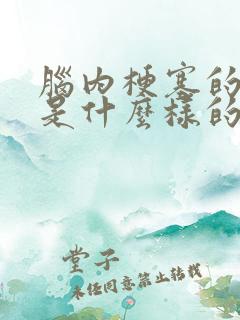 腦內梗塞的
是什麼樣的
堂子
未經同意禁止轉載